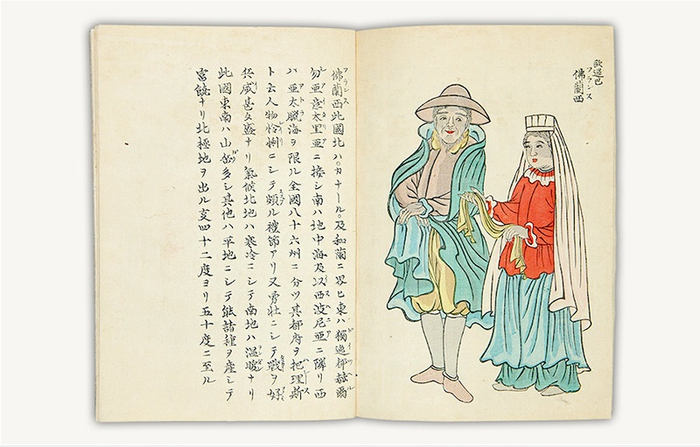 歐邏巴
フランス
佛蘭西
佛蘭西此國北ハ。カナール。及和蘭ニ界ヒ東ハ獨逸都赫爾
勿亞意太里亞ニ接シ南ハ地中海及以西波尼亞ニ隣リ西
ハ亞太臘海ヲ限ル全國八十六州ニ分ツ其都府ヲ把理斯
ト云人物怜悧ニシテ頗ル禮節アリ又勇壯ニシテ戰ヲ好
威甚タ盛ナリ氣候北地ハ寒冷ニシテ南地ハ温暖ナリ
此國東南ハ山岳多シ其他ハ平地ニシテ能諸種ヲ産シテ
富饒ナリ北極地ヲ出ル叓四十二度ヨリ五十度ニ至ル